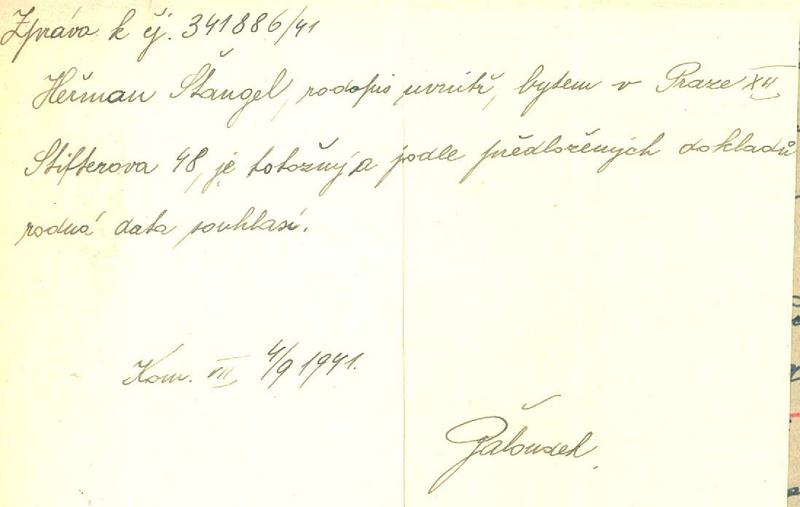 Zpráva k čj. 341886/41
Heřman Štangel, rodopis uvnitř, bytem v Praze XII
Stifterova 48, je totožný a podle předložených dokladů
rodná data souhlasí.
Kom. VII 4/9 1941.